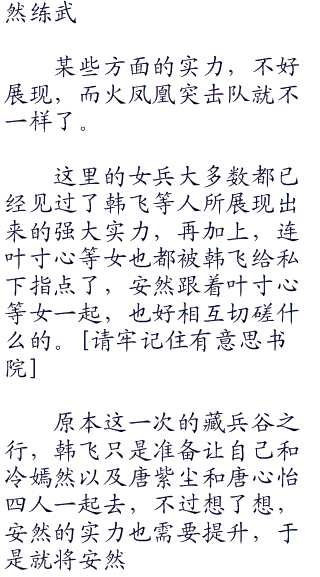 然练武
某些方面的实力，不好
展现，而火凤凰突击队就不
一样了。
这里的女兵大多数都已
经见过了韩飞等人所展现出
来的强大实力，再加上，连
叶寸心等女也都被韩飞给私
下指点了，安然跟着叶寸心
等女一起，也好相互切磋什
么的。[请牢记住有意思书
院]
原本这一次的藏兵谷之
行，韩飞只是准备让自己和
冷嫣然以及唐紫尘和唐心怡
四人一起去，不过想了想，
安然的实力也需要提升，于
是就将安然